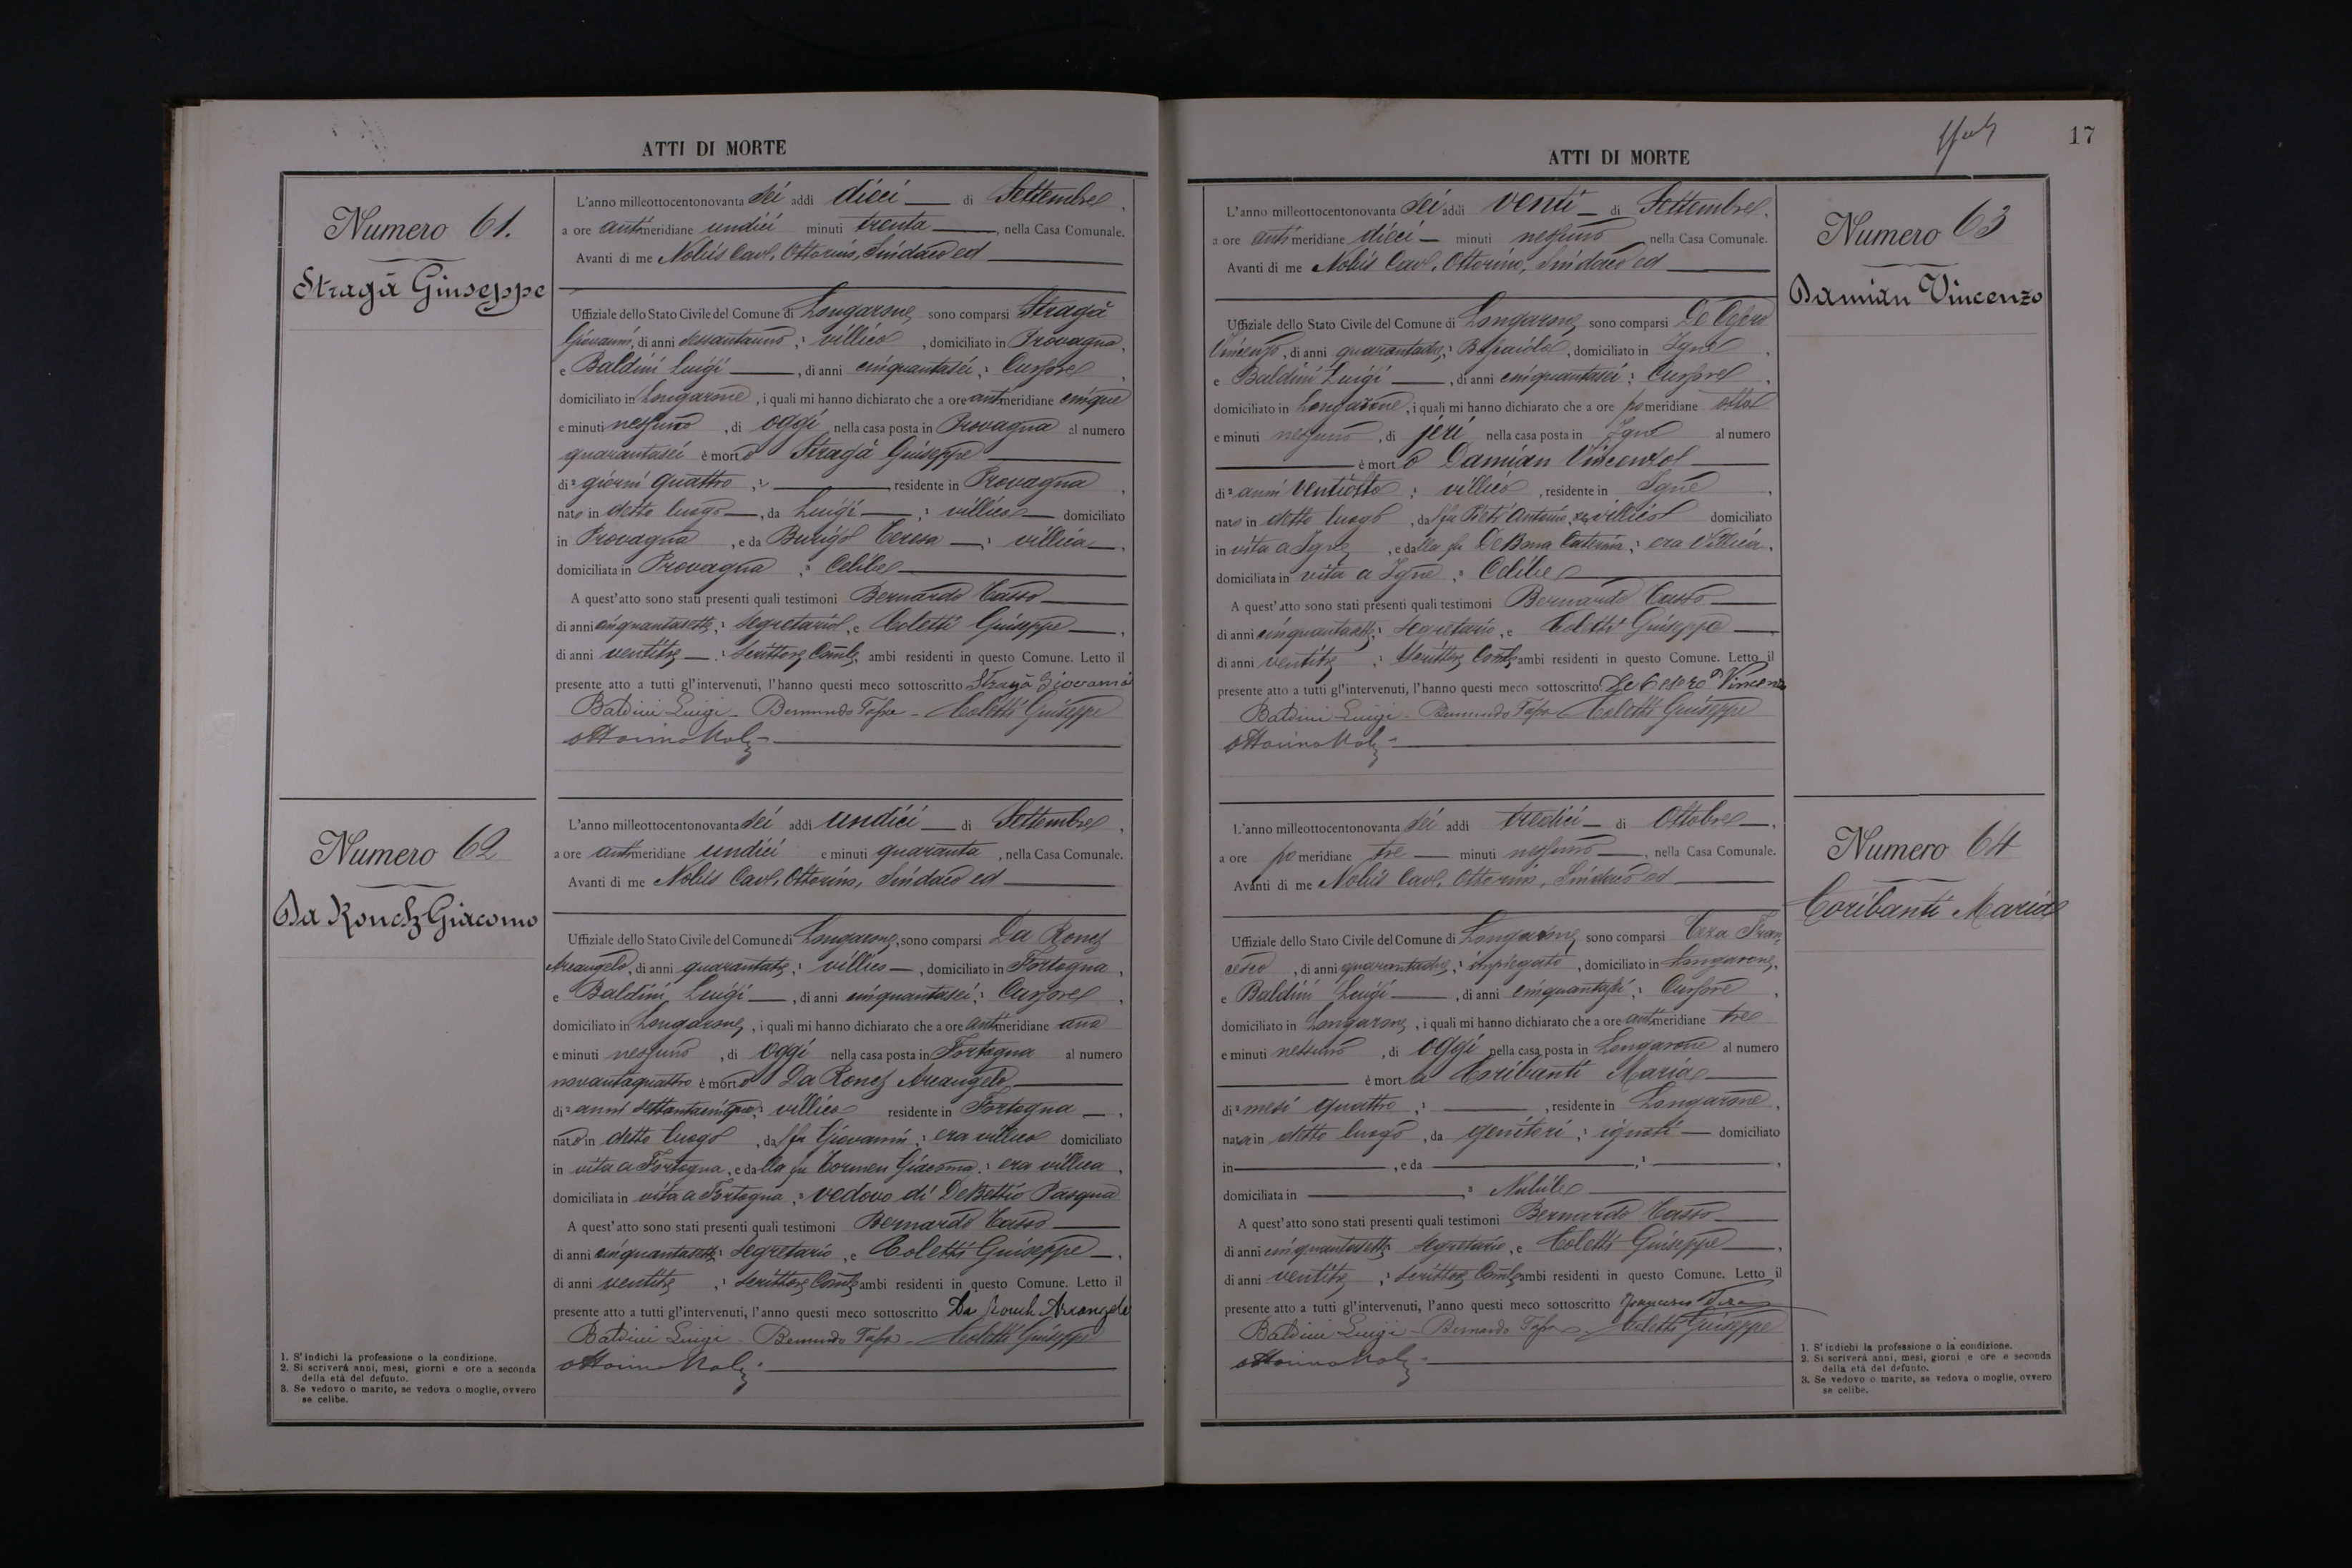 ATTI DI MORTE
Numero 61.
Stragà Giuseppe
L'anno milleottocentonovanta sei addì dieci di Settembre,
a ore antimeridiane undici minuti trenta, nella Casa Comunale.
Avanti di me Nobis Cav. Ottorino, Sindaco ed
Uffiziale dello Stato Civile del Comune di Longarone, sono comparsi Stragà
Giovanni, di anni sessantauno; villico, domiciliato in Provagna,
e Baldini Luigi, di anni cinquantasei; Cursore,
domiciliato in Longarone, i quali mi hanno dichiarato che a ore antimeridiane cinque
e minuti nessuno, di oggi nella casa posta in Provagna al numero
quarantasei è morto Stragà Giuseppe
di² giorni quattro, residente in Provagna,
nato in detto luogo, da Luigi; villico domiciliato
in Provagna, e da Burigo Teresa; villica,
domiciliata in Provagna; ³ Celibe
A quest'atto sono stati presenti quali testimoni Bernardo Tasso
di anni cinquantasette; Segretario, e Coletti Giuseppe,
di anni ventitre; scrittore Comle, ambi residenti in questo Comune. Letto il
presente atto a tutti gl'intervenuti, l'hanno questi meco sottoscritto Stragà Giovanni
Baldini Luigi - Bernardo Tasso - Coletti Giuseppe
Ottorino
Numero 62
Da Ronch Giacomo
L'anno milleottocentonovanta sei addì undici di Settembre,
a ore antimeridiane undici e minuti quaranta, nella Casa Comunale.
Avanti di me Nobis Cav. Ottorino, Sindaco ed
Uffiziale dello Stato Civile del Comune di Longarone, sono comparsi Da Ronch
Arcangelo, di anni quarantatre; villico, domiciliato in Fortogna,
e Baldini Luigi, di anni cinquantasei; Cursore,
domiciliato in Longarone, i quali mi hanno dichiarato che a ore antimeridiane una
e minuti nessuno, di oggi nella casa posta in Fortogna al numero
novantaquattro è morto Da Ronch Arcangelo
di² anni settantacinque; villico residente in Fortogna,
nato in detto luogo, dal fu Giovanni; era villico domiciliato
in vita a Fortogna, e dalla fu Tormen Giacoma; era villica,
domiciliata in vita a Fortogna; ³ vedovo di De Bettio Pasqua
A quest'atto sono stati presenti quali testimoni Bernardo Tasso
di anni cinquantasette; Segretario, e Coletti Giuseppe,
di anni ventitre; scrittore Comle ambi residenti in questo Comune. Letto il
presente atto a tutti gl'intervenuti, l'anno questi meco sottoscritto Da Ronch Arcangelo
Baldini Luigi - Bernardo Tasso - Coletti Giuseppe
Ottorino
1. S'indichi la professione o la condizione.
2. Si scriverà anni, mesi, giorni e ore a seconda
della età del defunto.
3. Se vedovo o marito, se vedova o moglie, ovvero
se celibe.
17
ATTI DI MORTE
Numero 63
Damian Vincenzo
L'anno milleottocentonovanta sei addì venti di Settembre,
a ore antimeridiane dieci minuti nessuno, nella Casa Comunale.
Avanti di me Nobis Cav. Ottorino, Sindaco ed
Uffiziale dello Stato Civile del Comune di Longarone, sono comparsi De Cesero
Vincenzo, di anni quarantadue; domiciliato in Igne,
e Baldini Luigi, di anni cinquantasei; Cursore,
domiciliato in Longarone, i quali mi hanno dichiarato che a ore pomeridiane otto
e minuti nessuno, di jeri nella casa posta in Igne al numero
è morto Damian Vincenzo
di² anni ventiotto; villico, residente in Igne,
nato in detto luogo, dal fu Antonio, villico domiciliato
in vita a Igne, e dalla fu De Bona Caterina; era villica,
domiciliata in vita a Igne; ³ Celibe
A quest'atto sono stati presenti quali testimoni Bernardo Tasso
di anni cinquantasette; Segretario, e Coletti Giuseppe
di anni ventitre; Scrittore Comle ambi residenti in questo Comune. Letto il
presente atto a tutti gl'intervenuti, l'hanno questi meco sottoscritto De Cesero Vincenzo
Baldini Luigi - Bernardo Tasso - Coletti Giuseppe
Ottorino
Numero 64
Coribanti Maria
L'anno milleottocentonovanta sei addì tredici di Ottobre,
a ore pomeridiane tre minuti nessuno, nella Casa Comunale.
Avanti di me Nobis Cav. Ottorino, Sindaco ed
Uffiziale dello Stato Civile del Comune di Longarone, sono comparsi Teza Fran=
cesco, di anni quarantadue; impiegato, domiciliato in Longarone,
e Baldini Luigi, di anni cinquantasei; Cursore,
domiciliato in Longarone, i quali mi hanno dichiarato che a ore antimeridiane tre
e minuti nessuno, di oggi nella casa posta in Longarone al numero
è morta Coribanti Maria
di² mesi quattro, residente in Longarone,
nata in detto luogo, da genitori; ignoti domiciliato
in, e da
domiciliata in; ³ Nubile
A quest'atto sono stati presenti quali testimoni Bernardo Tasso
di anni cinquantasette Segretario, e Coletti Giuseppe,
di anni ventitre; scrittore Comle ambi residenti in questo Comune. Letto il
presente atto a tutti gl'intervenuti, l'anno questi meco sottoscritto Francesco Teza
Baldini Luigi - Bernardo Tasso - Coletti Giuseppe
Ottorino
1. S'indichi la professione o la condizione.
2. Si scriverà anni, mesi, giorni e ore e seconda
della età del defunto.
3. Se vedovo o marito, se vedova o moglie, ovvero
se celibe.